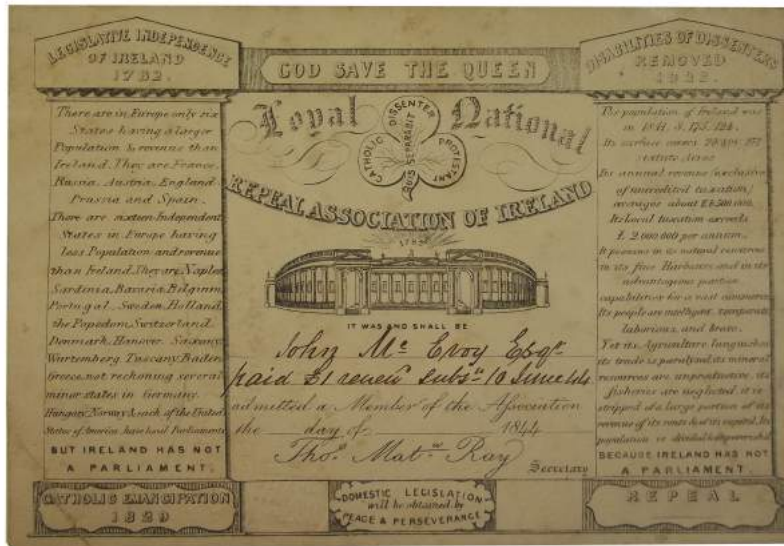 LEGISLATIVE INDEPENDENCE
OF IRELAND
1782.
GOD SAVE THE QUEEN
DISABILITIES OF DISSENTERS
REMOVED
1828.
There are in Europe only six
States having a larger
Population & revenue than
Ireland. They are France,
Russia, Austria, England
Prussia and Spain.
There are sixteen Independent
States in Europe having
less Population and revenue
than Ireland. They are, Naples
Sardinia, Bavaria, Belgium,
Portugal, Sweden, Holland,
the Popedom, Switzerland,
Denmark, Hanover, Saxony,
Wurtemberg, Tuscany, Baden
Greece, not reckoning several
minor states in Germany.
Hungary, Norway & each of the United
States of America have local Parliaments
BUT IRELAND HAS NOT
A PARLIAMENT.
CATHOLIC EMANCIPATION
1829
Loyal National
CATHOLIC DISSENTER PROTESTANT
QUIS SEPARABIT
REPEAL ASSOCIATION OF IRELAND
1782
IT WAS AND SHALL BE
John Mc Evoy Esqr
paid £1 renew subsn 10 June 44
admitted a Member of the Association
the day of 1844
Thos. Matw. Ray
Secretary
DOMESTIC LEGISLATION
will be obtained by
PEACE & PERSEVERANCE
The population of Ireland was
in 1841. 8,175,124.
Its surface covers
statute Acres
Its annual revenue (exclusive
of uncredited taxation)
averages about £4,500,000.
Its local taxation exceeds
£ 2,000,000 per annum.
It possesses in its natural resources
in its fine Harbours and in its
advantageous position
capabilities for a vast commerce
Its people are intelligent, temperate
laborious, and brave.
Yet its Agriculture languishes
its trade is paralysed, its mineral
resources are unproductive, its
fisheries are neglected, it is
stripped of a large portion of its
revenue of its rents & of its capital, Its
population is divided & impoverished
BECAUSE IRELAND HAS NOT
A PARLIAMENT.
REPEAL